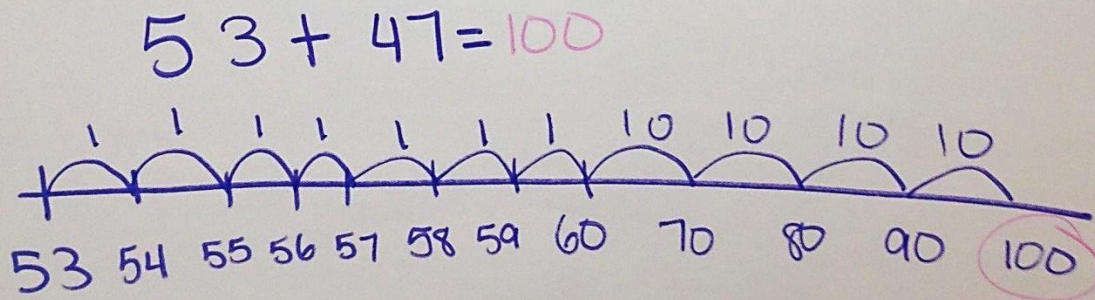 53 + 47 = 100
1 1 1 1 1 1 1 10 10 10 10
53 54 55 56 57 58 59 60 70 80 90 100